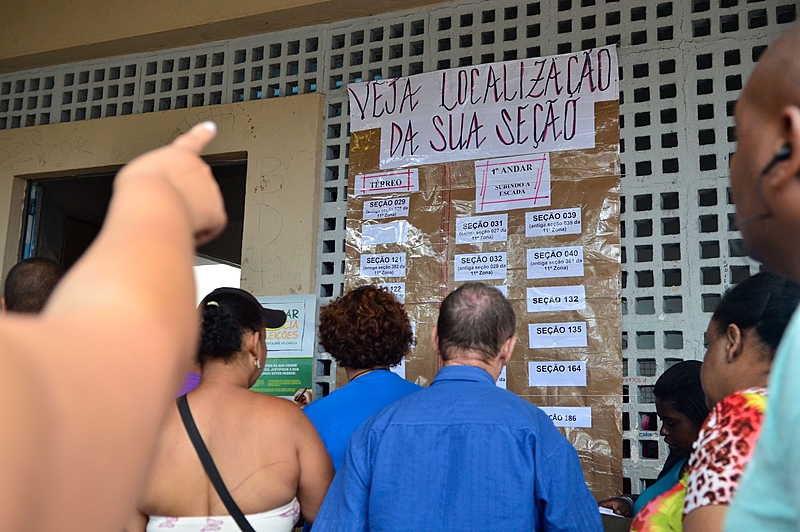 VEJA LOCALIZAÇÃO
DA SUA SEÇÃO
TÉRREO
1º ANDAR
SUBINDO A
ESCADA
SEÇÃO 029
11ª Zona)
SEÇÃO 121
(antiga seção 382 da
11ª Zona)
122
SEÇÃO 031
(antiga seção 027 da
11ª Zona)
SEÇÃO 032
(antiga seção 028 da
11ª Zona)
SEÇÃO 039
11ª Zona)
SEÇÃO 040
(antiga seção 361 da
11ª Zona)
SEÇÃO 132
SEÇÃO 135
SEÇÃO 164
SEÇÃO 186